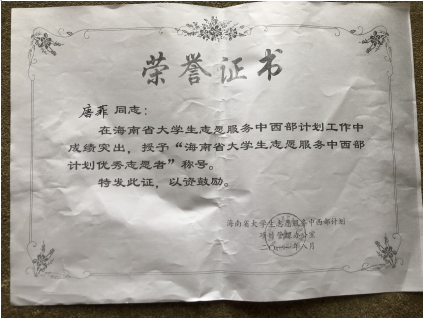 荣誉证书
唐菲 同志：
在海南省大学生志愿服务中西部计划工作中
成绩突出，授予“海南省大学生志愿服务中西部
计划优秀志愿者”称号。
特发此证，以资鼓励。
海南省大学生志愿服务中西部计划
项目管理办公室
年八月